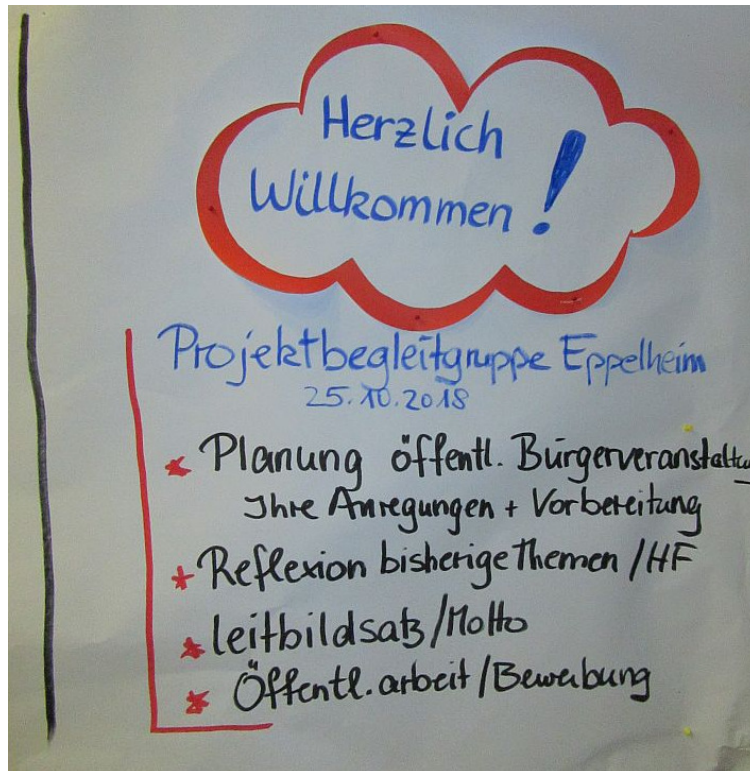 Herzlich
Willkommen!
Projektbegleitgruppe Eppelheim
25.10.2018
* Planung öffentl. Bürgerveranstaltu
Ihre Anregungen + Vorbereitung
* Reflexion bisherige Themen / HF
* Leitbildsatz/Motto
* Öffentl.arbeit/Bewerbung